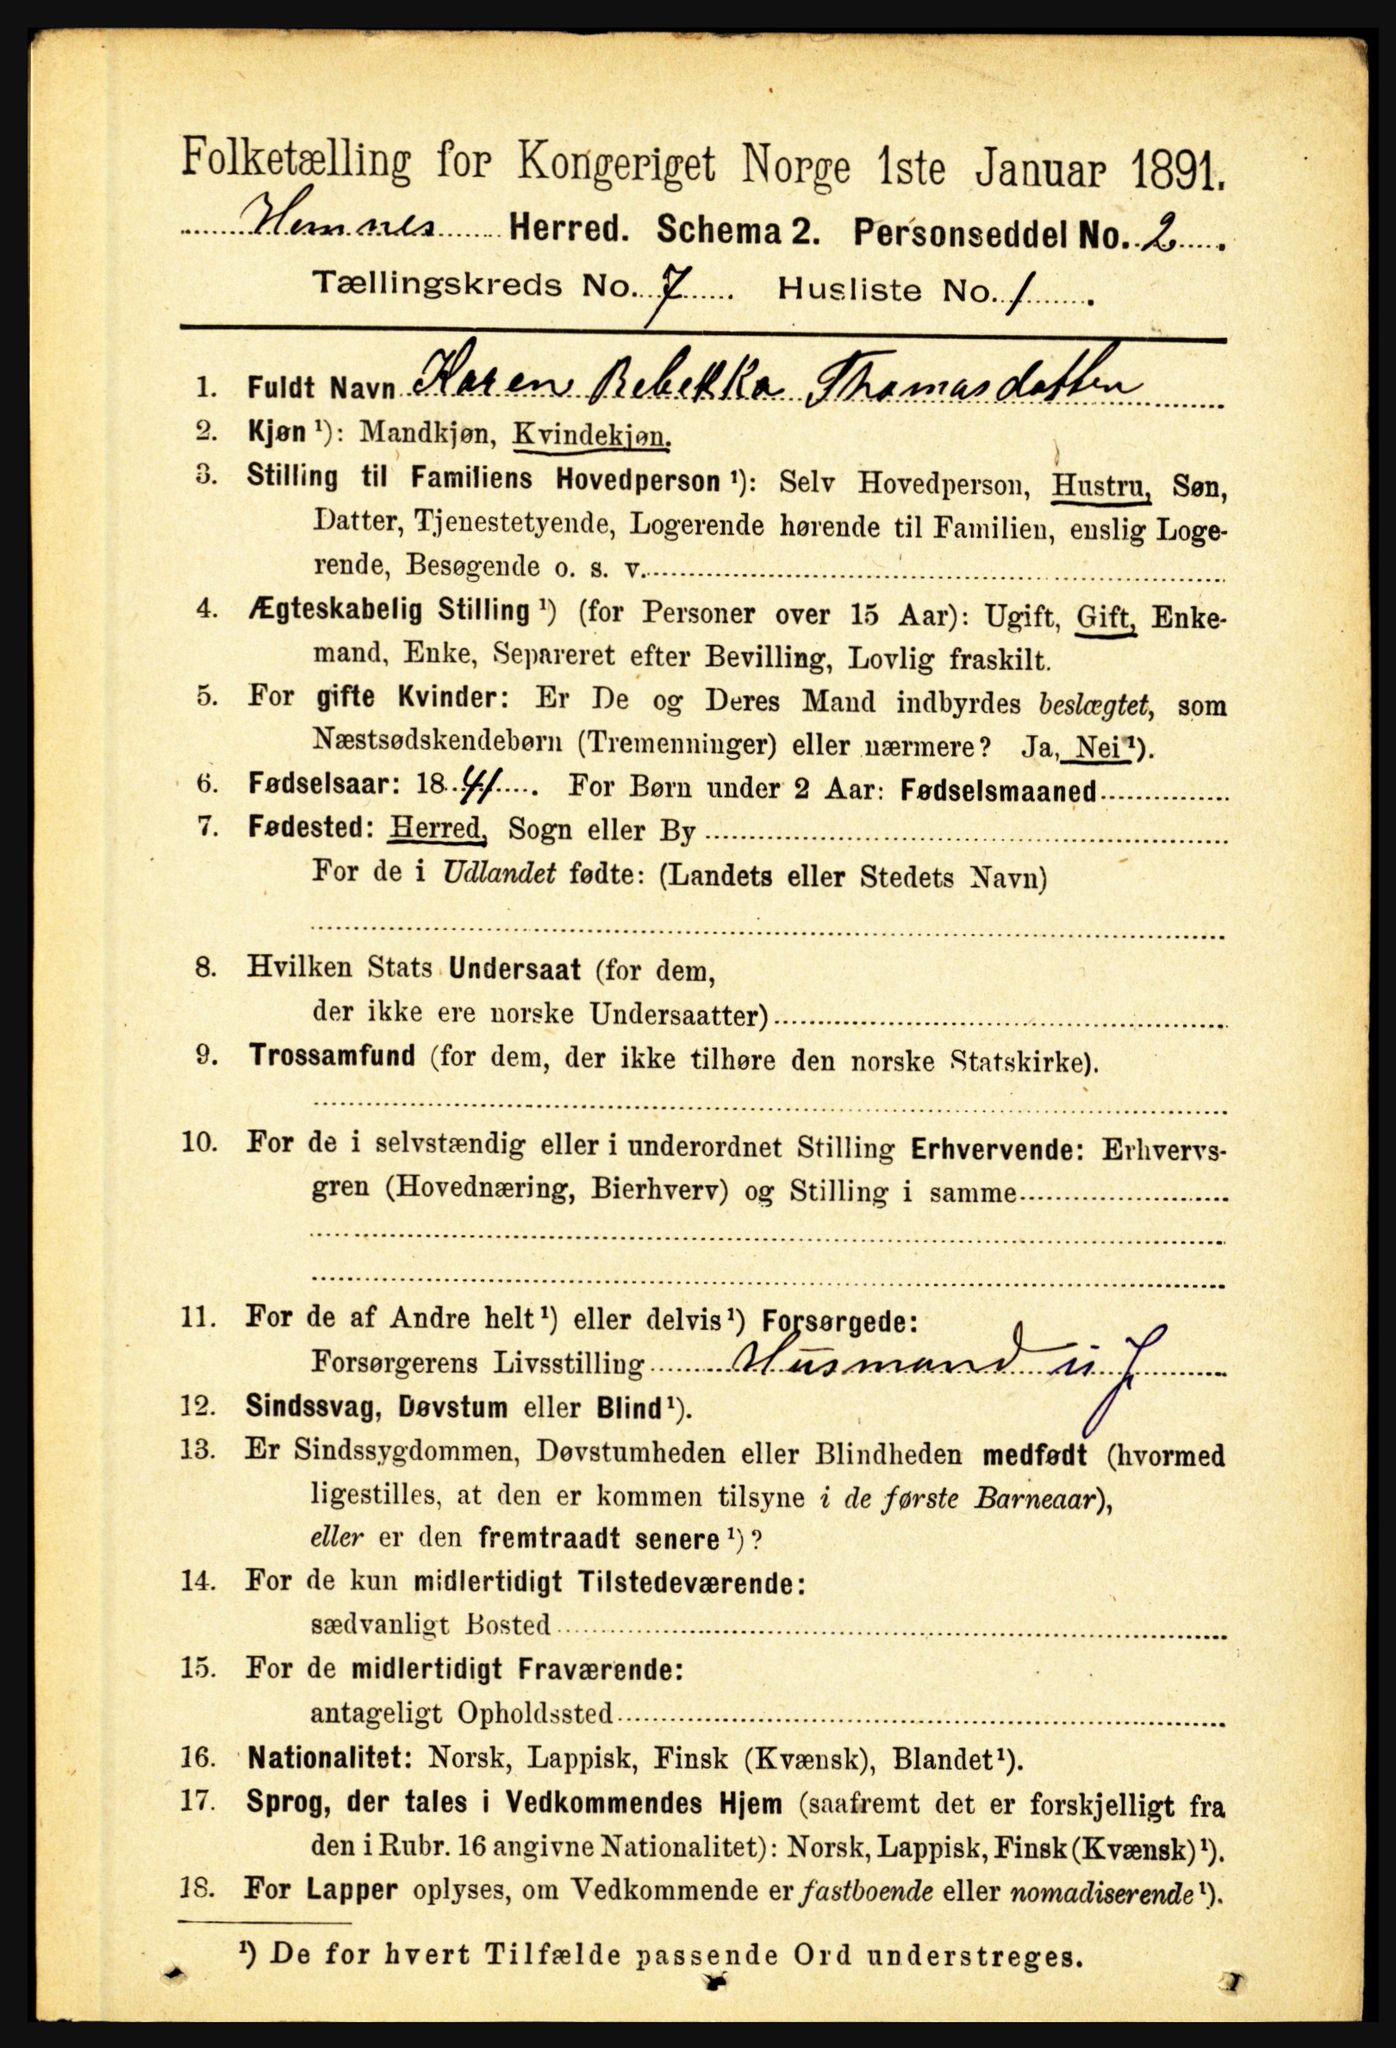 Folketælling for Kongeriget Norge 1ste Januar 1891.
Hemnes Herred. Schema 2. Personseddel No. 2.
Tællingskreds No. 7. Husliste No. 1.
1. Fuldt Navn Karen Rebekka Thomasdatter
2. Kjøn ¹): Mandkjøn, Kvindekjøn.
3. Stilling til Familiens Hovedperson ¹): Selv Hovedperson, Hustru, Søn,
Datter, Tjenestetyende, Logerende hørende til Familien, enslig Loge-
rende, Besøgende o. s. v.
4. Ægteskabelig Stilling ¹) (for Personer over 15 Aar): Ugift, Gift, Enke-
mand, Enke, Separeret efter Bevilling, Lovlig fraskilt.
5. For gifte Kvinder: Er De og Deres Mand indbyrdes beslægtet, som
Næstsødskendebørn (Tremenninger) eller nærmere? Ja, Nei ¹).
6. Fødselsaar: 1841. For Børn under 2 Aar: Fødselsmaaned
7. Fødested: Herred, Sogn eller By
For de i Udlandet fødte: (Landets eller Stedets Navn)
8. Hvilken Stats Undersaat (for dem,
der ikke ere norske Undersaatter)
9. Trossamfund (for dem, der ikke tilhøre den norske Statskirke).
10. For de i selvstændig eller i underordnet Stilling Erhvervende: Erhvervs-
gren (Hovednæring, Bierhverv) og Stilling i samme
11. For de af Andre helt ¹) eller delvis ¹) Forsørgede:
Forsørgerens Livsstilling Husmand u J
12. Sindssvag, Døvstum eller Blind ¹).
13. Er Sindssygdommen, Døvstumheden eller Blindheden medfødt (hvormed
ligestilles, at den er kommen tilsyne i de første Barneaar),
eller er den fremtraadt senere ¹)?
14. For de kun midlertidigt Tilstedeværende:
sædvanligt Bosted
15. For de midlertidigt Fraværende:
antageligt Opholdssted
16. Nationalitet: Norsk, Lappisk, Finsk (Kvænsk), Blandet ¹).
17. Sprog, der tales i Vedkommendes Hjem (saafremt det er forskjelligt fra
den i Rubr. 16 angivne Nationalitet): Norsk, Lappisk, Finsk (Kvænsk) ¹).
18. For Lapper oplyses, om Vedkommende er fastboende eller nomadiserende ¹).
¹) De for hvert Tilfælde passende Ord understreges.